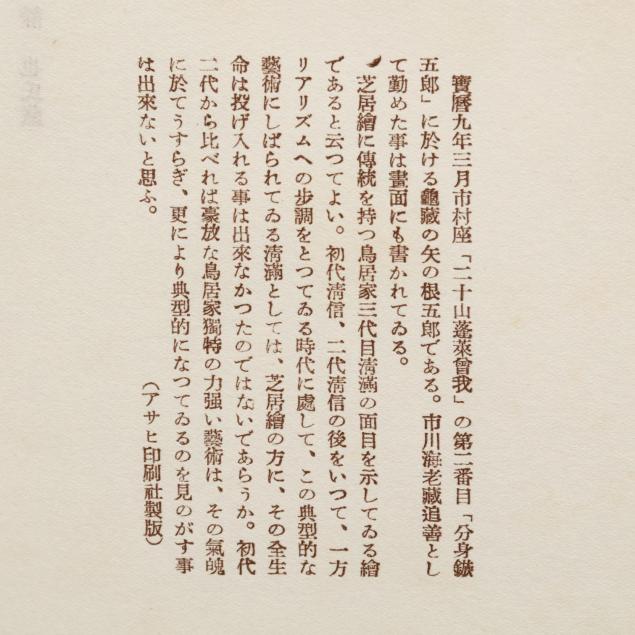 寶曆九年三月市村座「二十山蓬萊曾我」の第二番目「分身鏃
五郎」に於ける龜藏の矢の根五郎である。市川海老藏追善とし
て勤めた事は畫面にも書かれてゐる。
芝居繪に傳統を持つ鳥居家三代目淸滿の面目を示してゐる繪
であると云つてよい。初代淸信、二代淸信の後をいつて、一方
リアリズムへの步調をとつてゐる時代に處して、この典型的な
藝術にしばられてゐる淸滿としては、芝居繪の方に、その全生
命は投げ入れる事は出來なかつたのではないであらうか。初代
二代から比べれば豪放な鳥居家獨特の力强い藝術は、その氣魄
に於てうすらぎ、更により典型的になつてゐるのを見のがす事
は出來ないと思ふ。
（アサヒ印刷社製版）